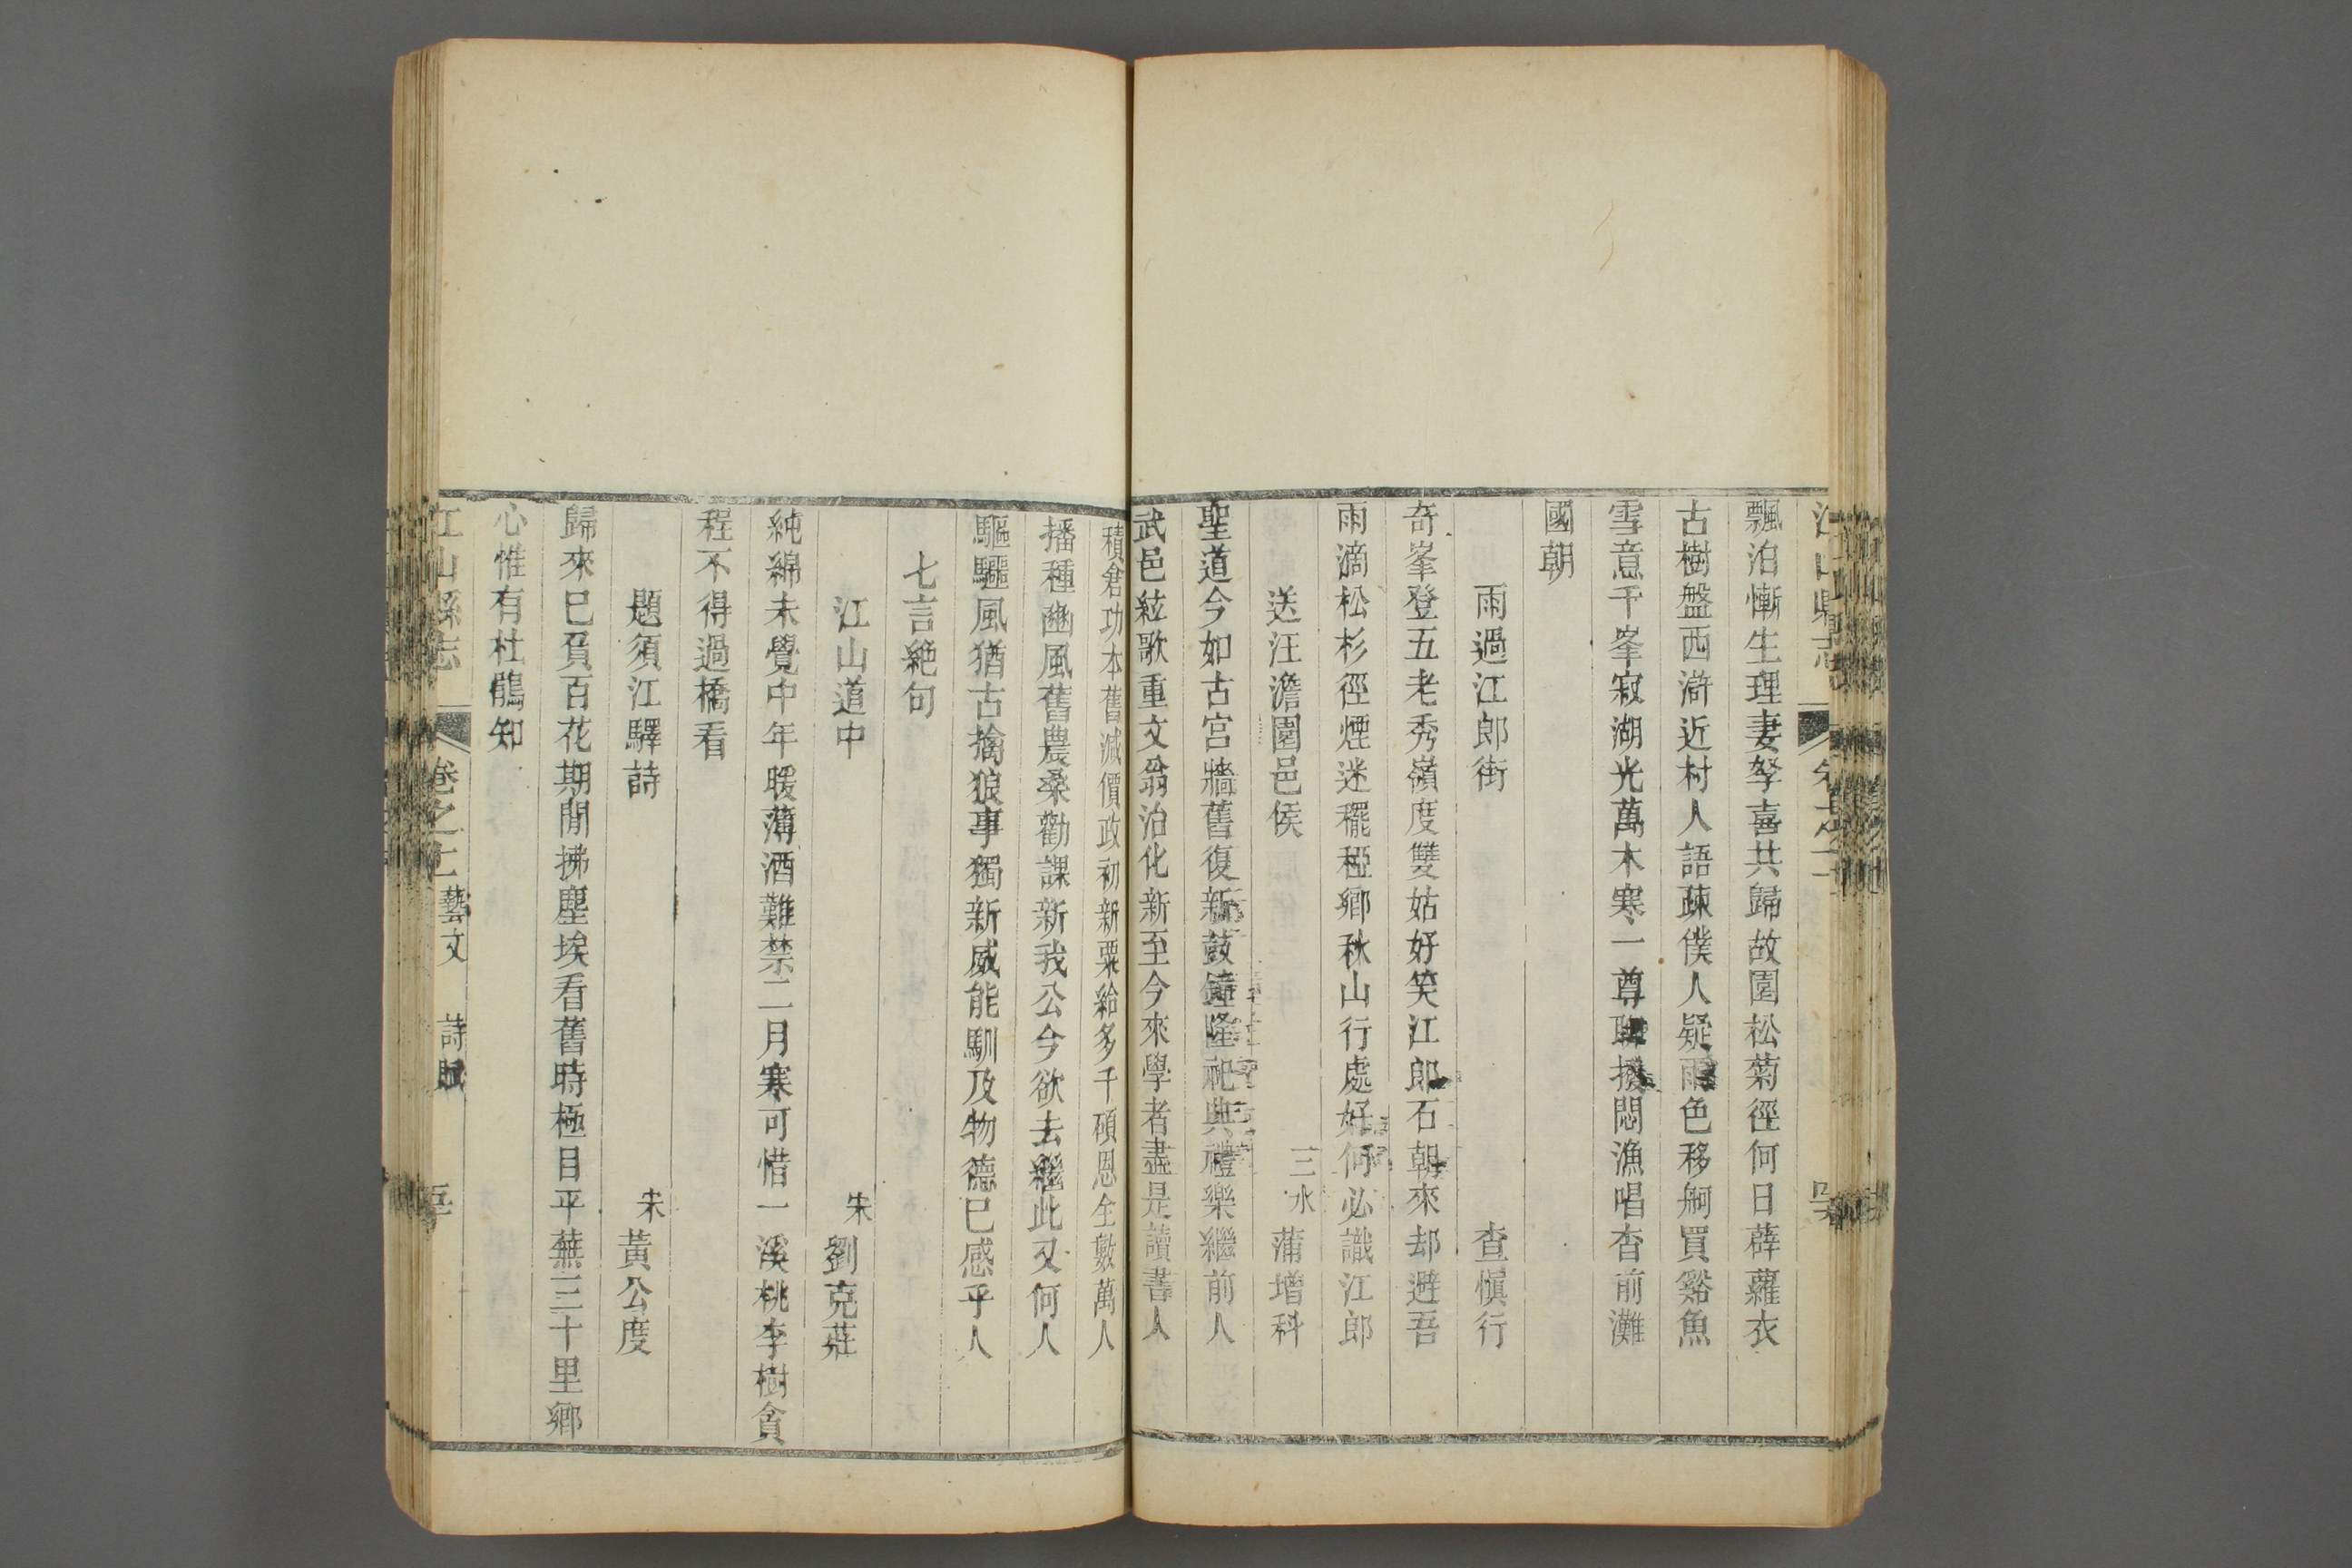 飄泊慚生理妻孥喜共歸故園松菊徑何日薜蘿衣
古樹盤西滸近村人語疎僕人疑雨色移舸買谿魚
雪意千峯寂湖光萬木寒一尊聊撥悶漁唱杳前灘
國朝
雨過江郎街 查愼行
奇峯登五老秀嶺度雙姑好笑江郎石朝來却避吾
雨滴松杉徑煙迷䆉稏鄉秋山行處好何必識江郎
送汪澹園邑侯 三水 蒲增科
聖道今如古宮牆舊復新鼓鐘隆祀典禮樂繼前人
武邑絃歌重文翁治化新至今來學者盡是讀書人
積倉功本舊減價政初新粟給多千碩恩全數萬人
播種豳風舊農桑勸課新我公今欲去繼此又何人
驅驪風猶古擒狼事獨新威能馴及物德已感乎人
七言絕句
江山道中 宋 劉克莊
純綿未覺中年暖薄酒難禁二月寒可惜一溪桃李樹貪
程不得過橋看
題須江驛詩 宋 黃公度
歸來已負百花期閒拂塵埃看舊時極目平蕪三十里鄉
心惟有杜鵑知
江山縣志 卷之十 藝文 詩賦